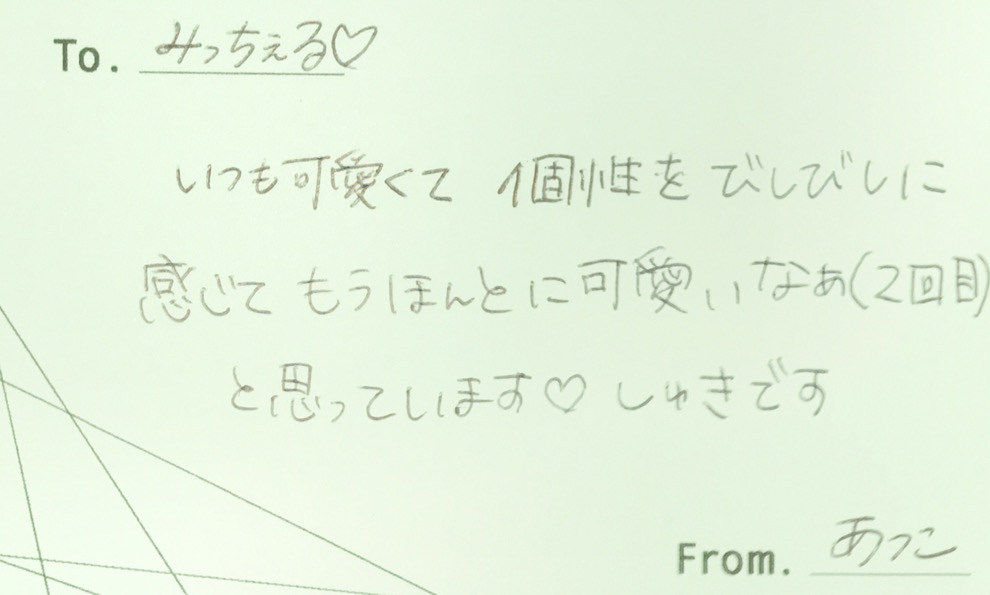 To. みっちぇる♡
いつも可愛くて 個性をびしびしに
感じて もうほんとに可愛いなぁ(2回目)
と思っています♡ しゅきです
From. あつこ